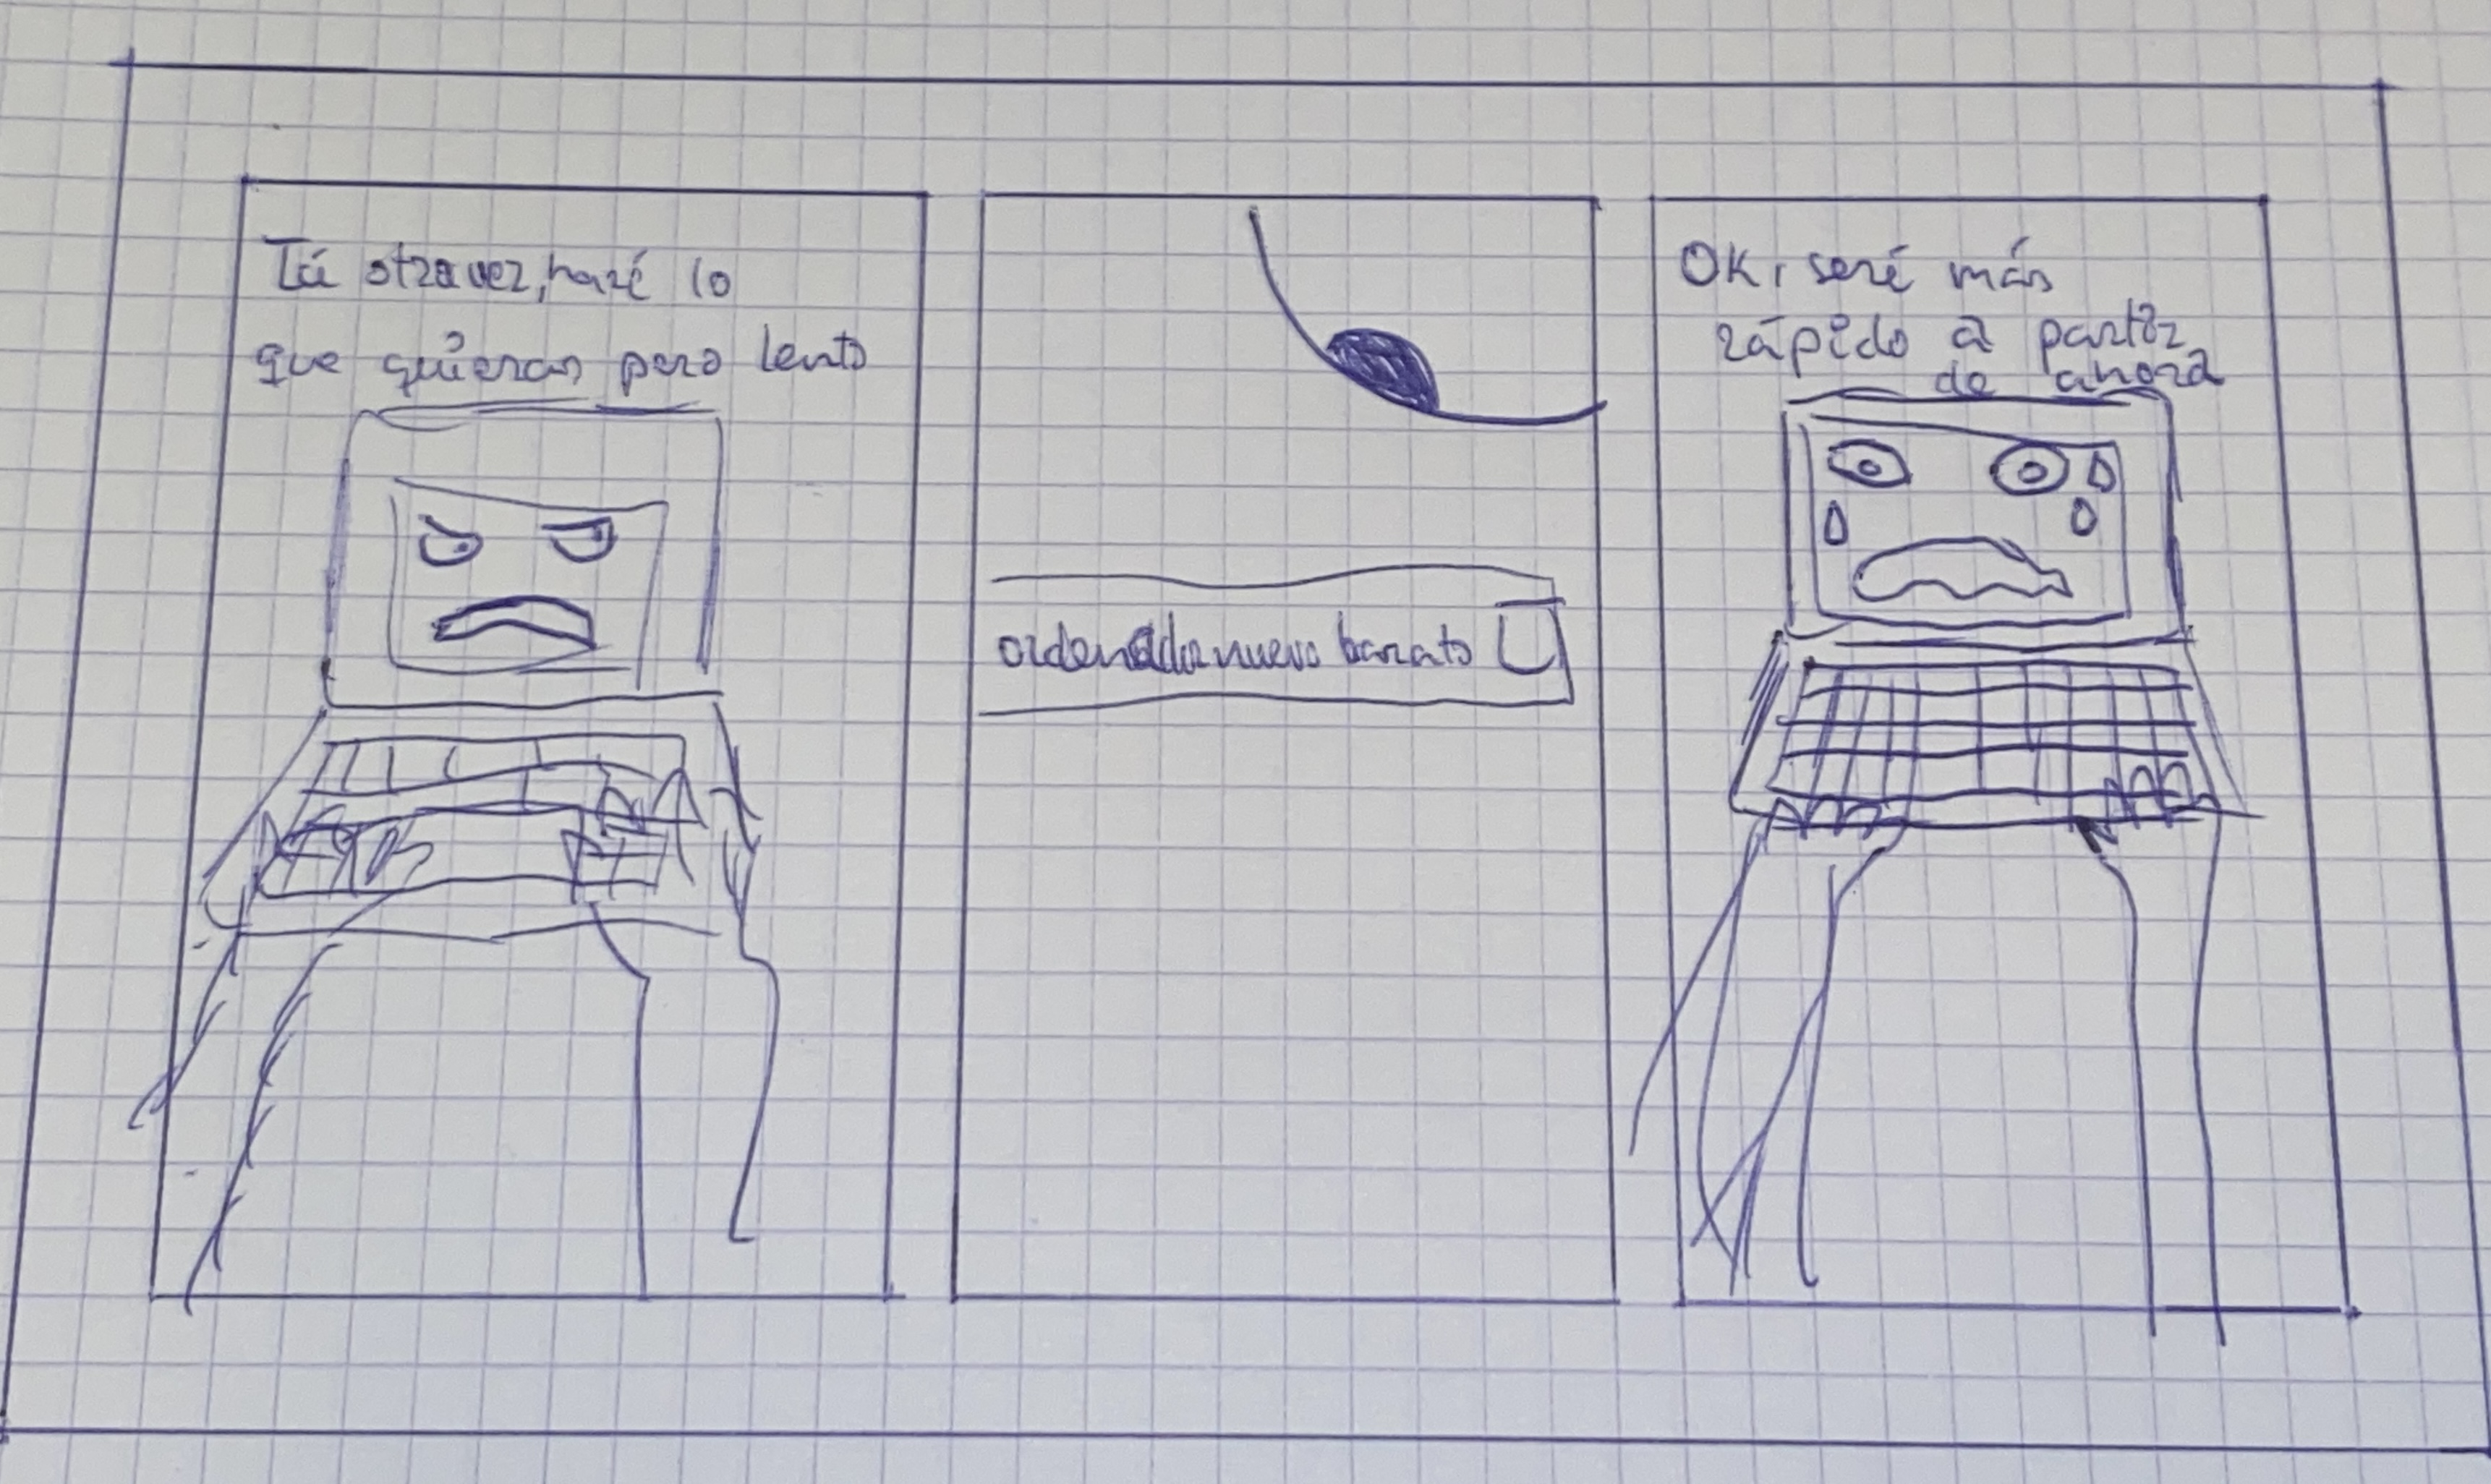 Tú otra vez, haré lo
que quieras pero lento
ordenador nuevo barato
OK, seré más
rápido a partir
de ahora